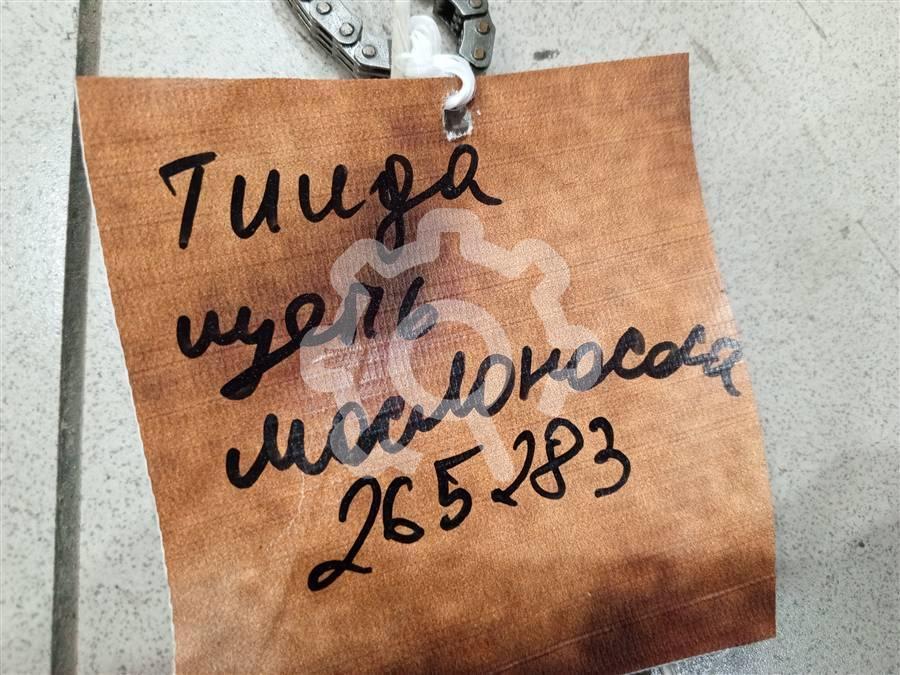 Тиида
цепь
маслонасоса
265283